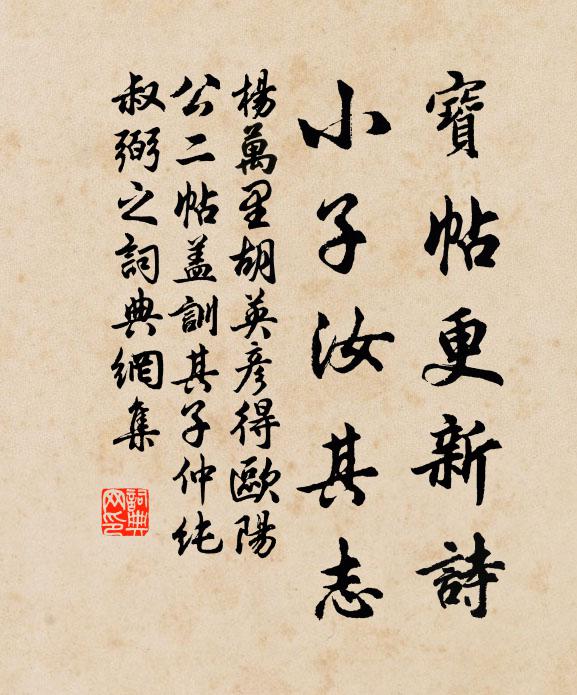 寶帖更新詩
小子汝其志
楊萬里胡英彥得歐陽
公二帖蓋訓其子仲純
叔弼之詞典網集
詞典網印